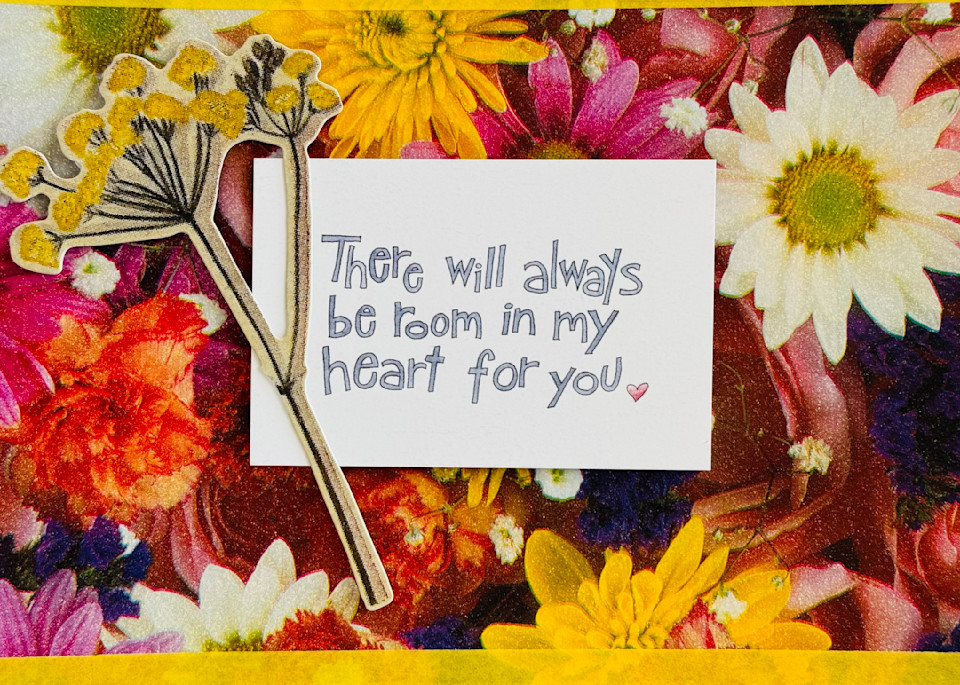 There will always
be room in my
heart for you